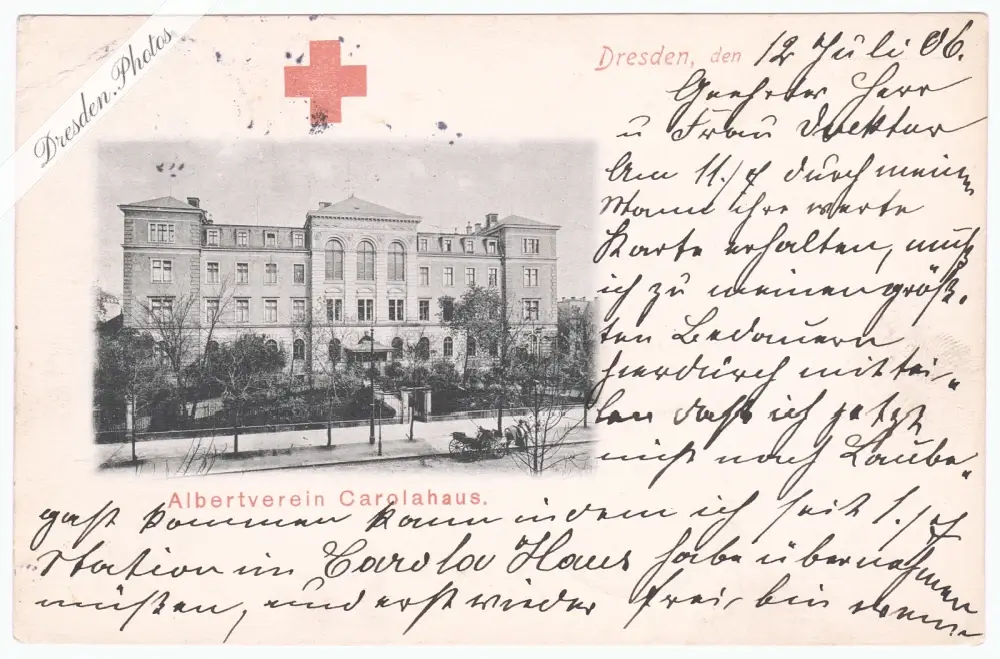 Dresden.Photos
Dresden, den 12 Juli 06.
Geehrter Herr
u Frau Direktor
Am 11./7 durch meinen
Mann ihre werte
Karte erhalten, muß
ich zu meinen größ-
ten Bedauern
hierdurch mittei-
len daß ich jetzt
nicht nach Laube-
gast kommen kann indem ich seit 1./7
Station im Carola Haus habe übernehmen
müßen, und erst wieder frei bin wenn
Albertverein Carolahaus.